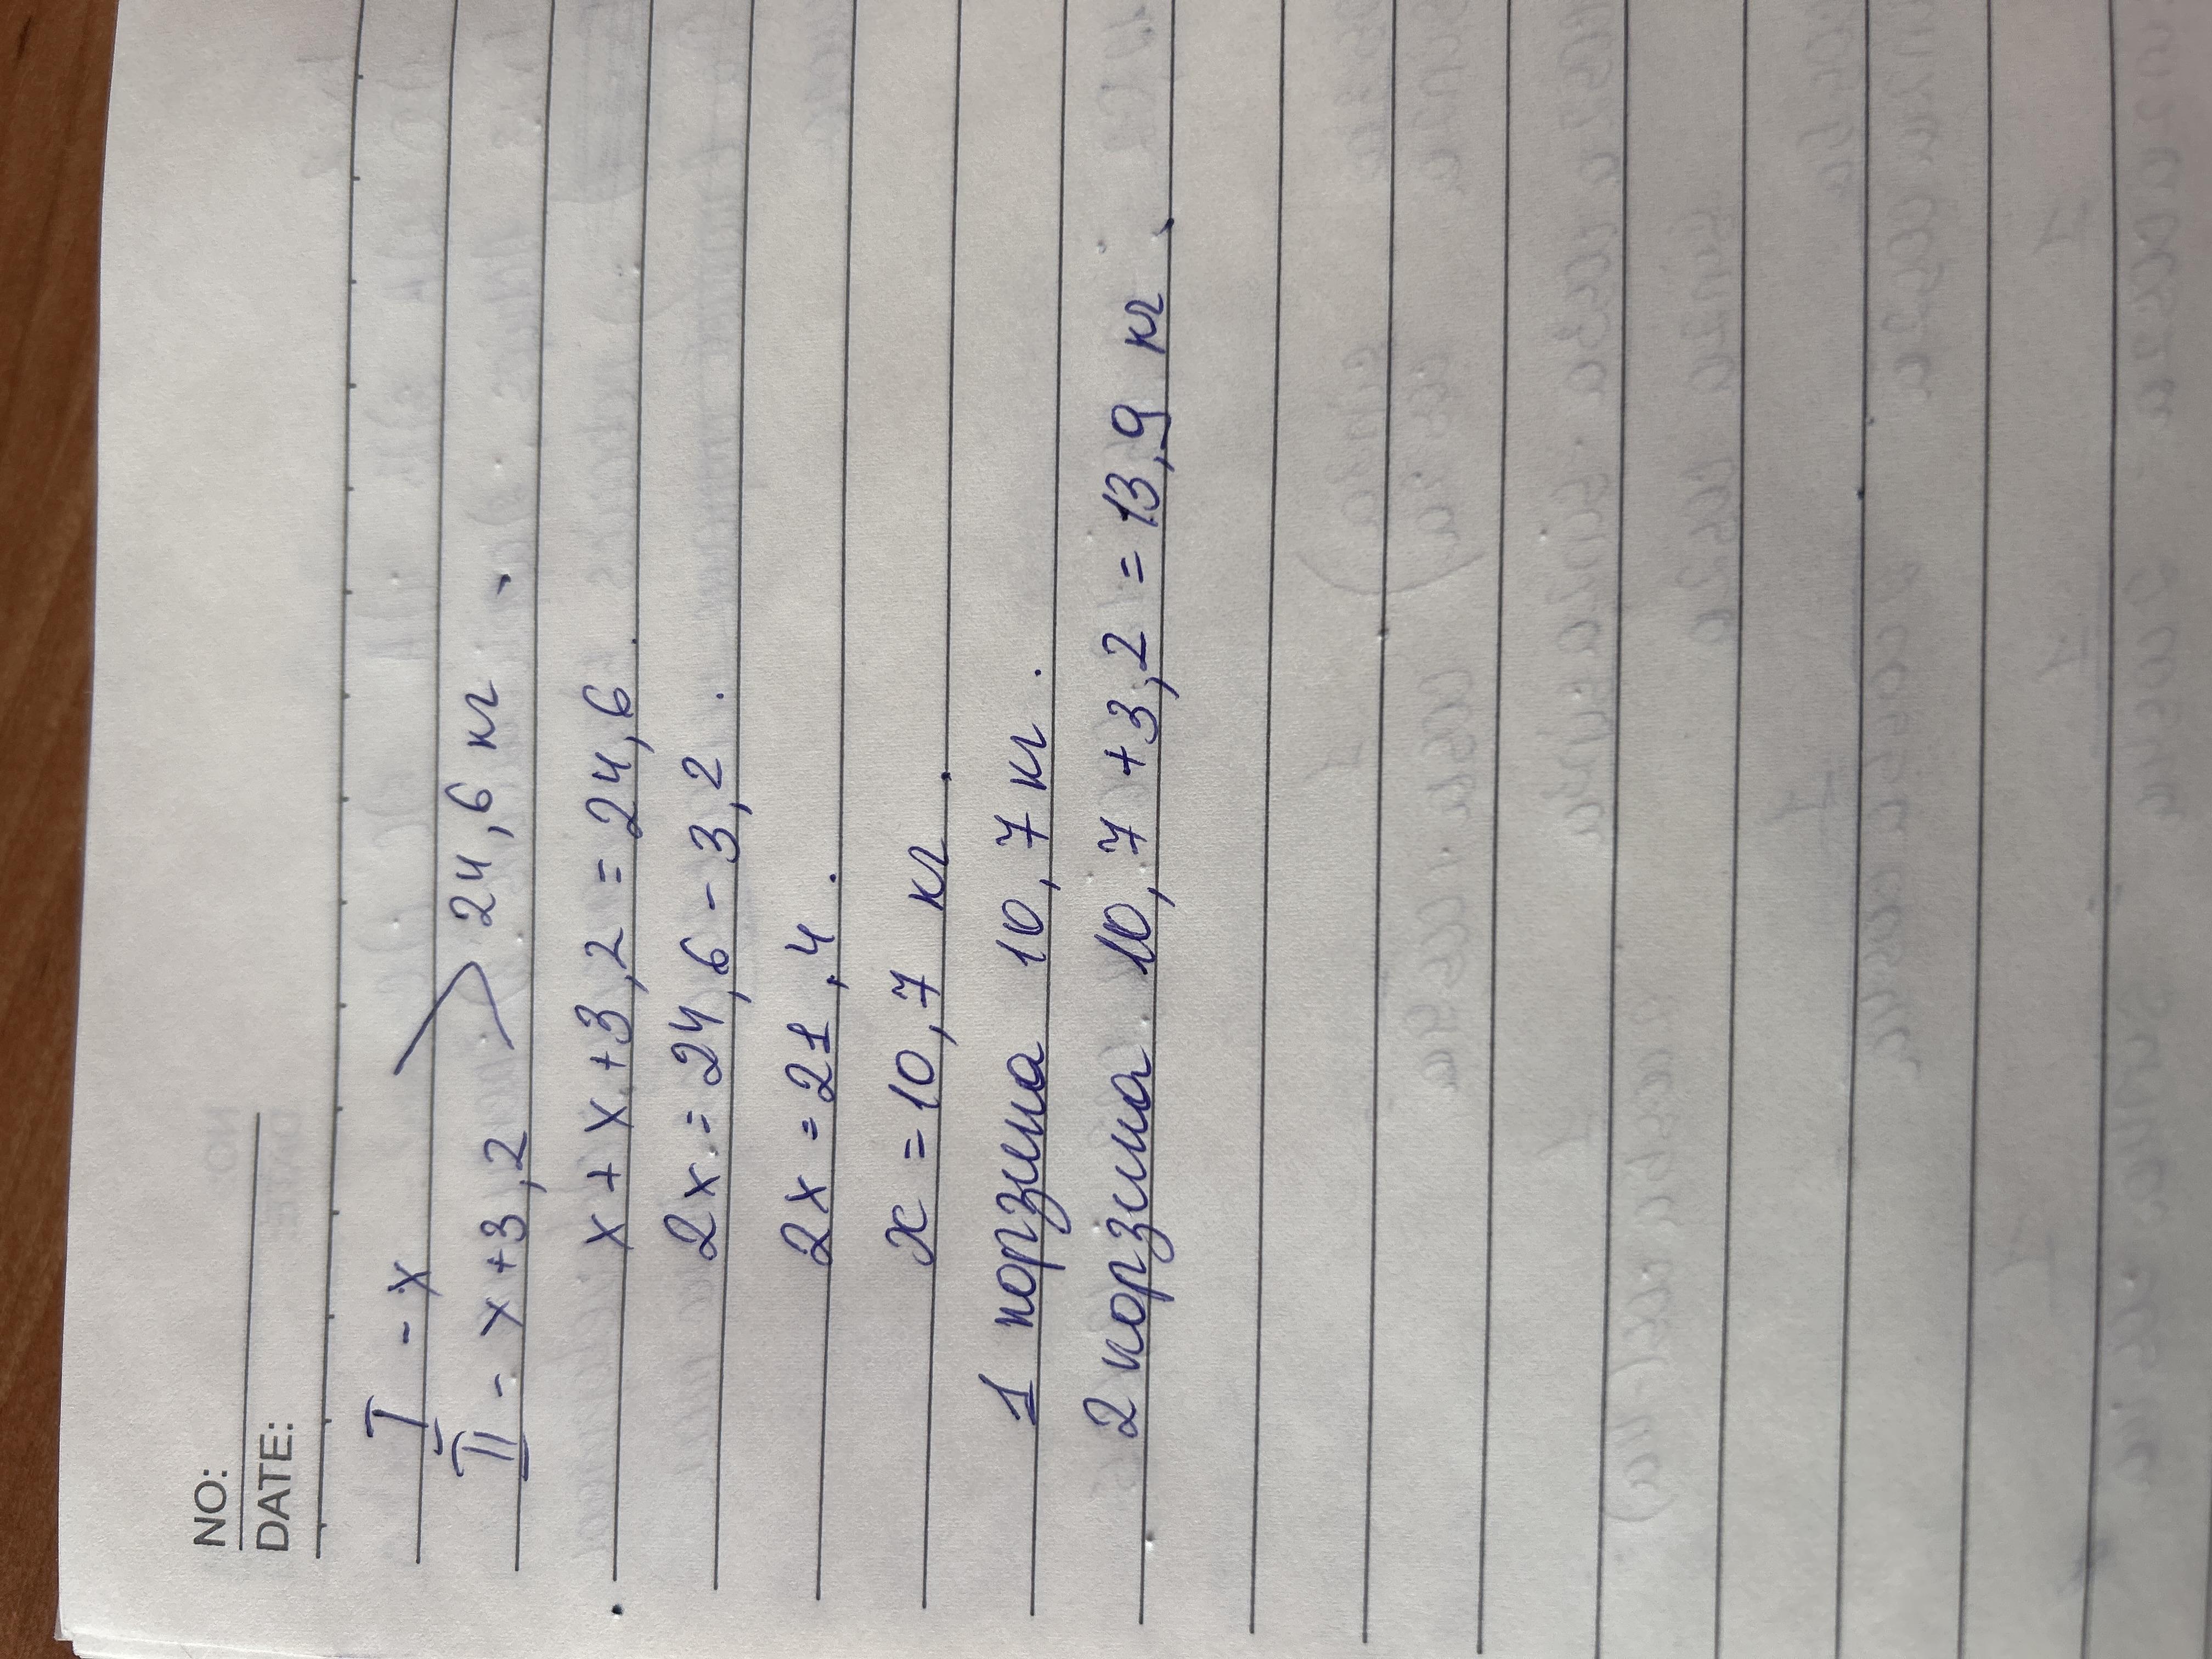 NO:
DATE:
I - x
II - x+3,2 > 24,6 кг.
x+x+3,2=24,6.
2x=24,6-3,2.
2x=21,4.
x=10,7 кг.
1 корзина 10,7 кг.
2 корзина 10,7+3,2=13,9 кг.